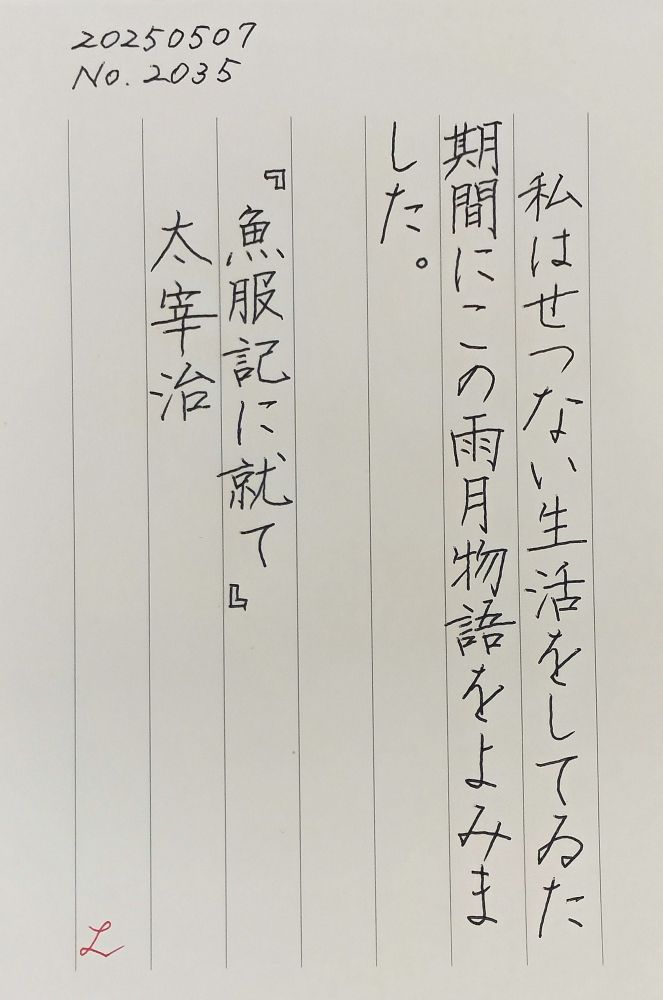 20250507
No. 2035
私はせつない生活をしてゐた
期間にこの雨月物語をよみま
した。
『魚服記に就て』
太宰治
L